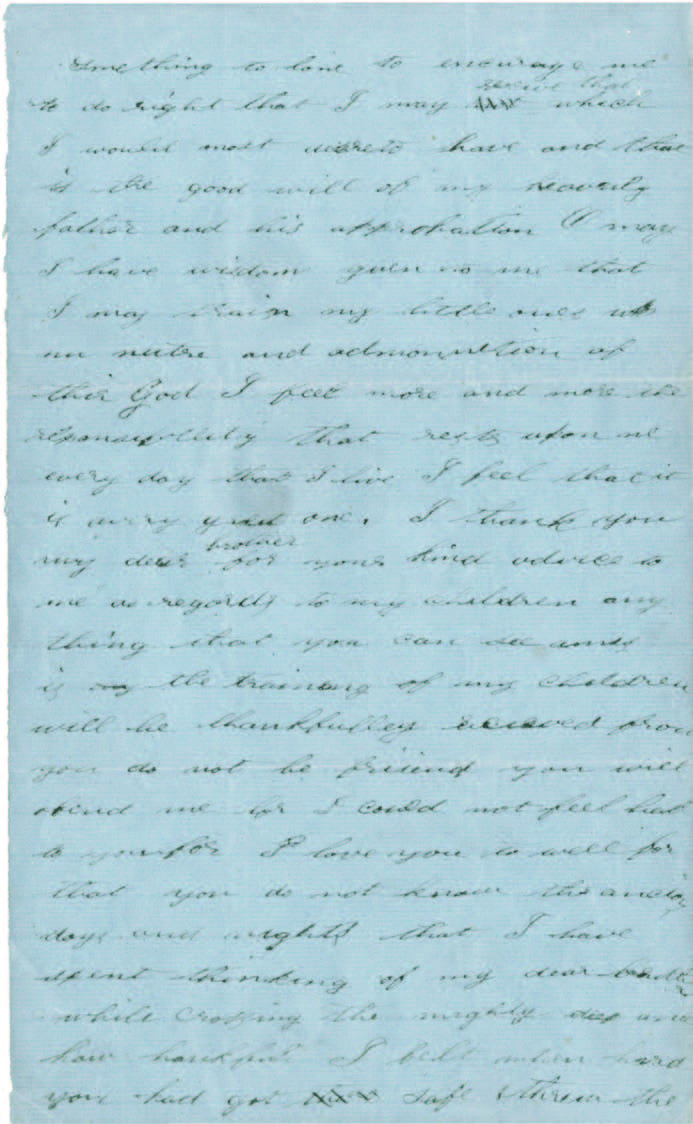 something to love to encourage me
receive that
to do right that I may which
I would most desire to have and that
is the good will of my heavenly
father and his approbation O may
I have wisdom given to me that
I may train my little ones
and admonition of
thir God I feel more and more the
responsibility that rests upon me
every day that I live I feel that it
is a very one. I thank you
brother
my dear for your kind advice to
me as regards to my children any
thing that you can see amis
is the training of my children
will be thankfulley recieved from
you do not be you will
ofend me for I could not feel hard
to you for I love you to well for
that you do not know the
days and nights that I have
spent thinking of my dear
while crossing the mighty deep and
how I felt when
you had got safe threw the